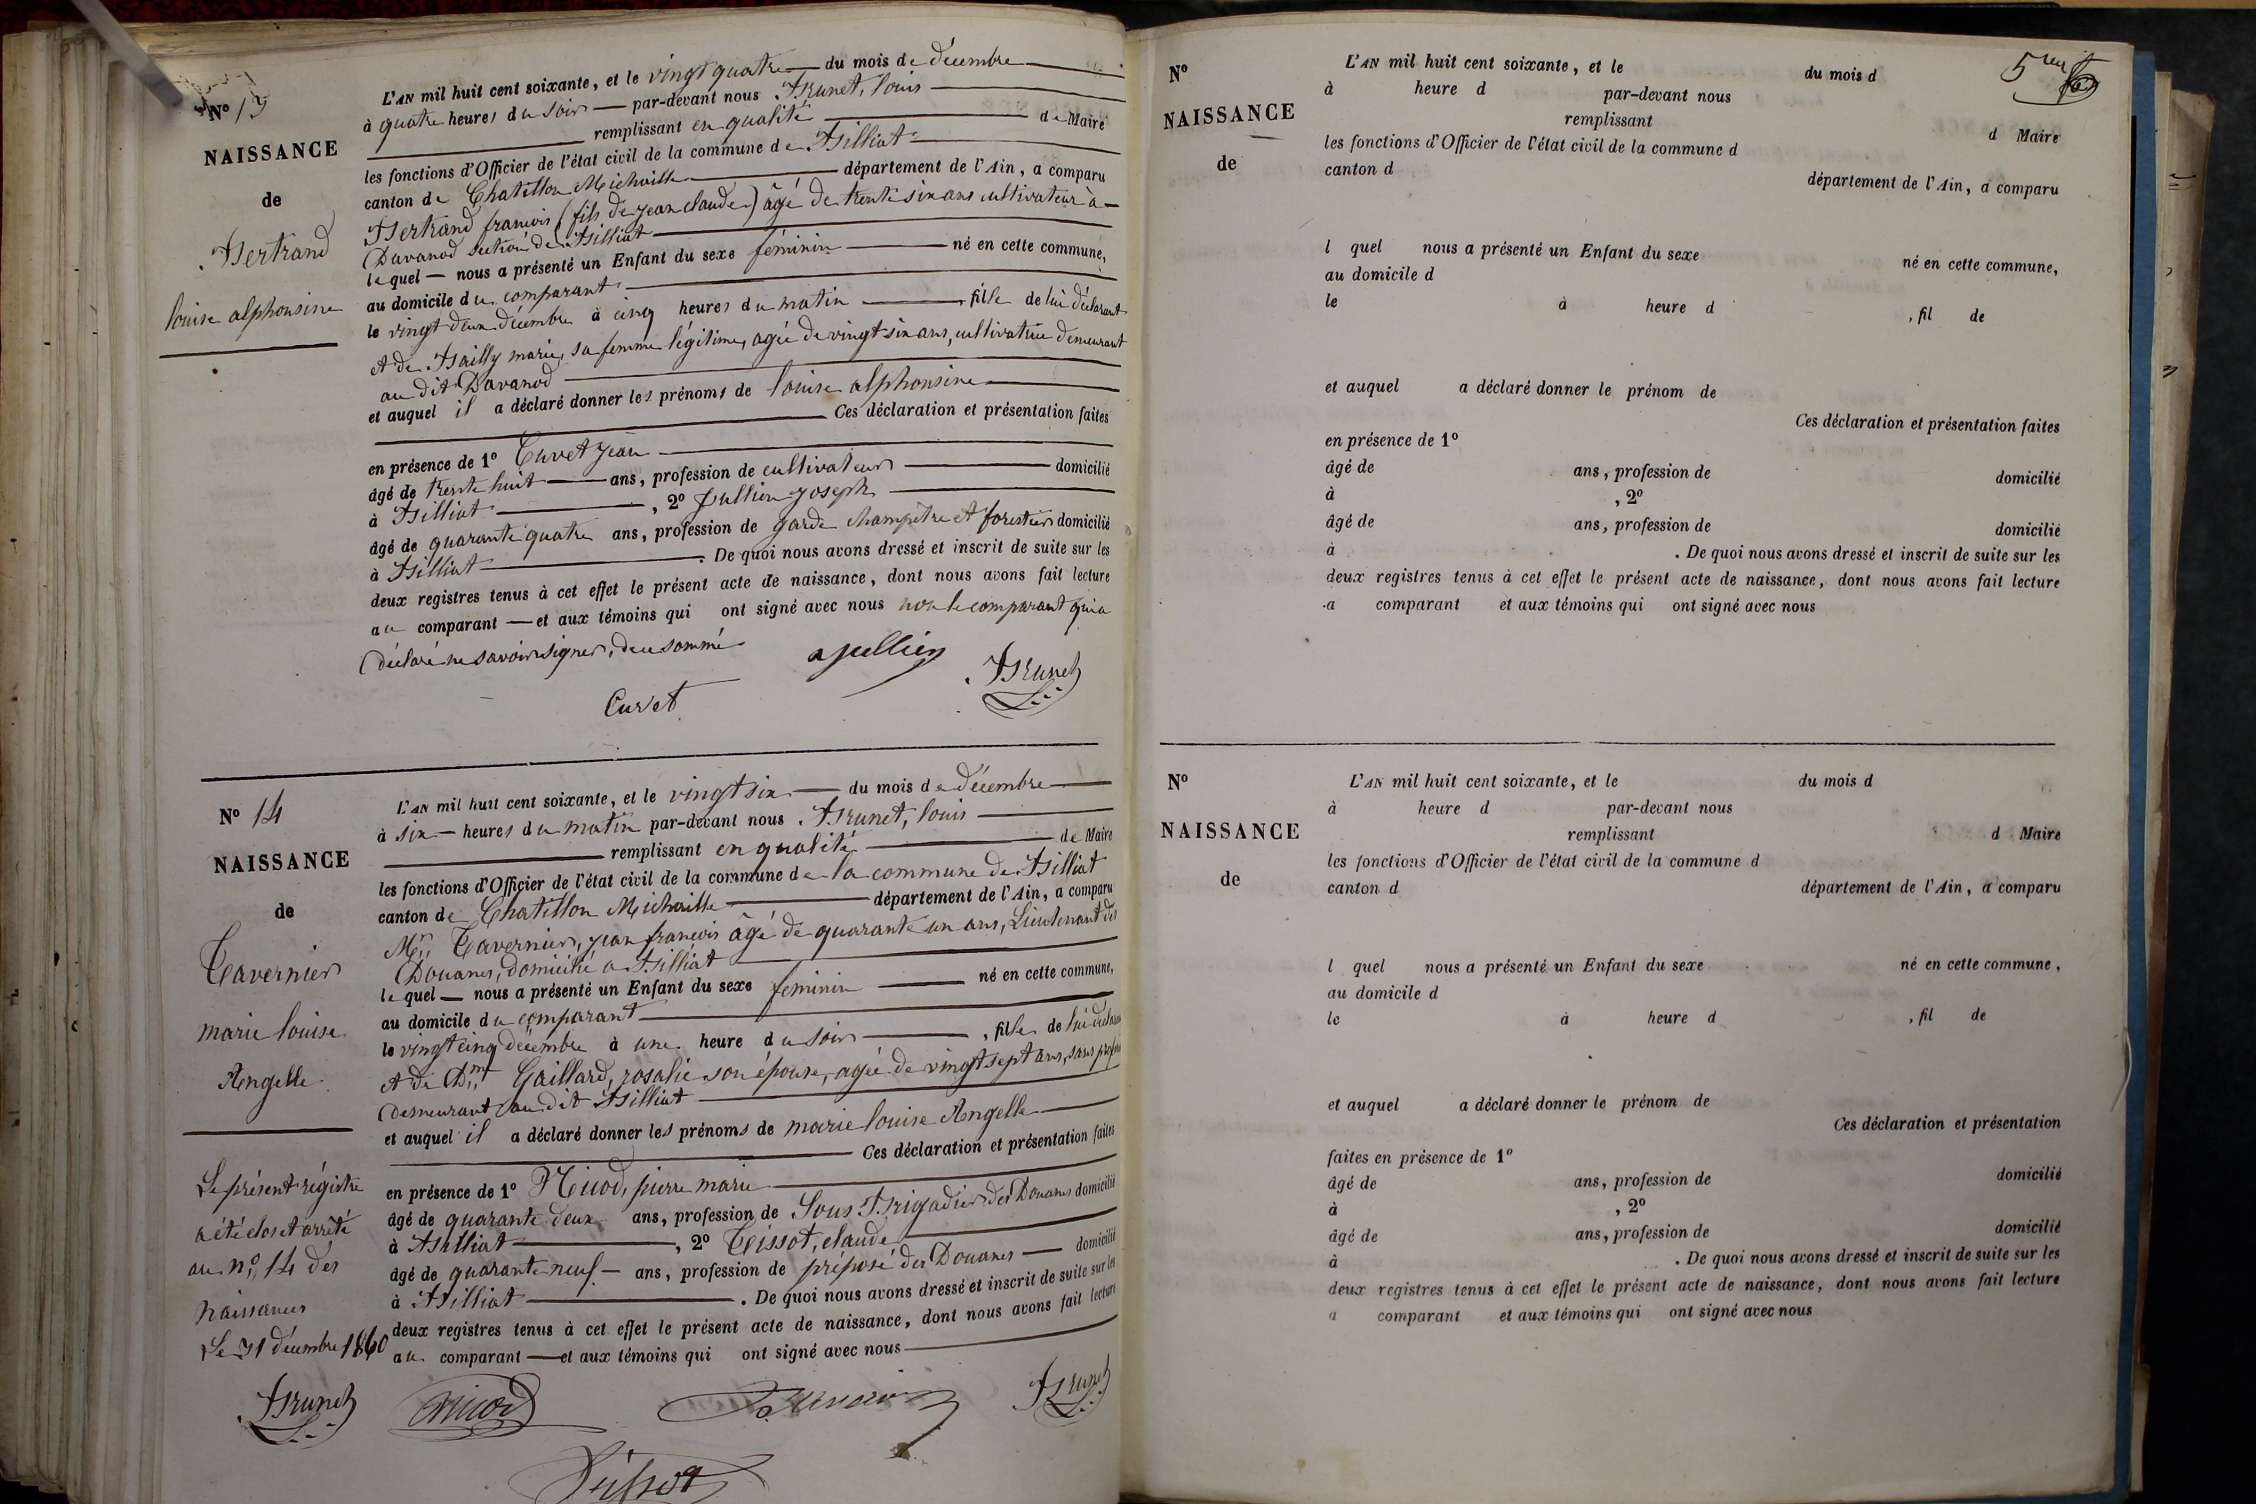 N° 13
NAISSANCE
de
Bertrand
louise alphonsine
L'AN mil huit cent soixante, et le vingt quatre du mois de décembre
à quatre heures du soir par-devant nous Brunet, louis
remplissant en qualité de Maire
les fonctions d'Officier de l'état civil de la commune de Billiat
canton de Chatillon Michaille département de l'Ain, a comparu
Bertrand francois (fils de jean claude) âgé de trente six ans cultivateur à
Davanod section de Billiat
lequel nous a présenté un Enfant du sexe féminin né en cette commune,
au domicile du comparant
le vingt deux décembre à cinq heures du matin, fille de lui déclarant
et de Bailly marie, sa femme légitime, agée de vingt six ans, cultivatrice demeurant
au dit Davanod
et auquel il a déclaré donner les prénoms de louise alphonsine
Ces déclaration et présentation faites
en présence de 1° Curvet jean
âgé de trente huit ans, profession de cultivateur domicilié
à Billiat, 2° Jullien joseph
âgé de quarante quatre ans, profession de garde champêtre et forestier domicilié
à Billiat. De quoi nous avons dressé et inscrit de suite sur les
deux registres tenus à cet effet le présent acte de naissance, dont nous avons fait lecture
au comparant et aux témoins qui ont signé avec nous non le comparant qui a
déclaré ne savoir signer, de ce sommé
Jullien
Brunet
Curvet
N° 14
NAISSANCE
de
Tavernier
marie louise
Angelle
Le présent régistre
a été clos et arrêté
au n° 14 des
naissances
Le 31 décembre 1860
Brunet
L'AN mil huit cent soixante, et le vingt six du mois de décembre
à six heures du matin par-devant nous Brunet, louis
remplissant en qualité de Maire
les fonctions d'Officier de l'état civil de la commune de la commune de Billiat
canton de Chatillon Michaille département de l'Ain, a comparu
Mr. Tavernier, jean francois âgé de quarante un ans, Lieutenant des
Douanes, domicilié a Billiat
lequel nous a présenté un Enfant du sexe féminin né en cette commune,
au domicile du comparant
le vingt cinq décembre à une heure du soir, fille de lui déclarant
et de Dme Gaillard, rosalie son épouse, agée de vingt sept ans, sans profession
demeurant au dit Billiat
et auquel il a déclaré donner les prénoms de marie louise Angelle
Ces déclaration et présentation faites
en présence de 1° Nicod, pierre marie
âgé de quarante deux ans, profession de Sous Brigadier des Douanes domicilié
à Billiat, 2° Tissot, claude
âgé de quarante neuf ans, profession de préposé des Douanes domicilié
à Billiat. De quoi nous avons dressé et inscrit de suite sur les
deux registres tenus à cet effet le présent acte de naissance, dont nous avons fait lecture
au comparant et aux témoins qui ont signé avec nous
Nicod
Tavernier
Brunet
Tissot
5me
N°
NAISSANCE
de
L'AN mil huit cent soixante, et le du mois d
à heure d par-devant nous
remplissant d Maire
les fonctions d'Officier de l'état civil de la commune d
canton d département de l'Ain, a comparu
l quel nous a présenté un Enfant du sexe né en cette commune,
au domicile d
le à heure d , fil de
et auquel a déclaré donner le prénom de
Ces déclaration et présentation faites
en présence de 1°
âgé de ans, profession de domicilié
à , 2°
âgé de ans, profession de domicilié
à . De quoi nous avons dressé et inscrit de suite sur les
deux registres tenus à cet effet le présent acte de naissance, dont nous avons fait lecture
a comparant et aux témoins qui ont signé avec nous
N°
NAISSANCE
de
L'AN mil huit cent soixante, et le du mois d
à heure d par-devant nous
remplissant d Maire
les fonctions d'Officier de l'état civil de la commune d
canton d département de l'Ain, a comparu
l quel nous a présenté un Enfant du sexe né en cette commune,
au domicile d
le à heure d , fil de
et auquel a déclaré donner le prénom de
Ces déclaration et présentation
faites en présence de 1°
âgé de ans, profession de domicilié
à , 2°
âgé de ans, profession de domicilié
à . De quoi nous avons dressé et inscrit de suite sur les
deux registres tenus à cet effet le présent acte de naissance, dont nous avons fait lecture
a comparant et aux témoins qui ont signé avec nous